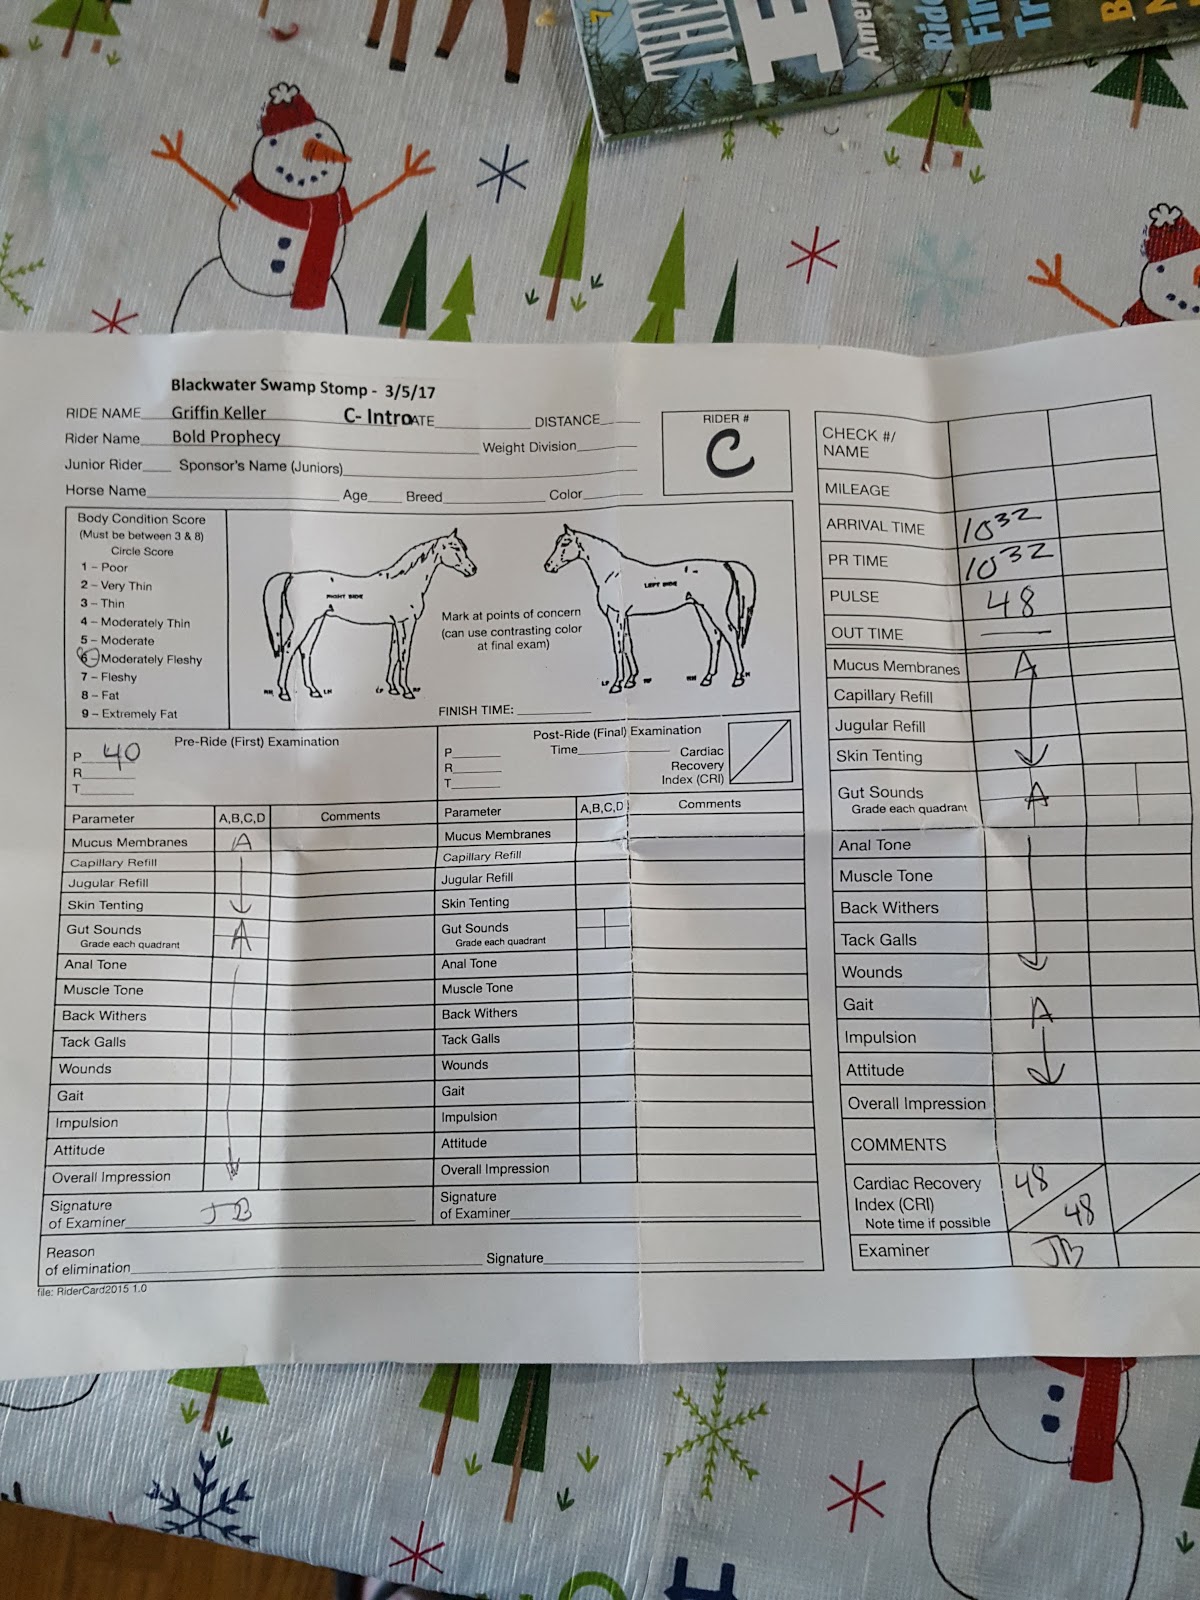 7
THE
E
Amer
Ride
Fin
Tr
B
N
Blackwater Swamp Stomp - 3/5/17
RIDE NAME Griffin Keller C- Intro ATE DISTANCE
Rider Name Bold Prophecy Weight Division
Junior Rider Sponsor's Name (Juniors)
Horse Name Age Breed Color
RIDER #
C
Body Condition Score
(Must be between 3 & 8)
Circle Score
1 – Poor
2 – Very Thin
3 – Thin
4 – Moderately Thin
5 – Moderate
6 – Moderately Fleshy
7 – Fleshy
8 – Fat
9 – Extremely Fat
RIGHT SIDE
LEFT SIDE
Mark at points of concern
(can use contrasting color
at final exam)
FINISH TIME:
Pre-Ride (First) Examination
P 40
R
T
Post-Ride (Final) Examination
P Time Cardiac
R Recovery
T Index (CRI)
Parameter A,B,C,D Comments
Mucus Membranes A
Capillary Refill
Jugular Refill
Skin Tenting
Gut Sounds A
Grade each quadrant
Anal Tone
Muscle Tone
Back Withers
Tack Galls
Wounds
Gait
Impulsion
Attitude
Overall Impression
Signature
of Examiner JB
Parameter A,B,C,D Comments
Mucus Membranes
Capillary Refill
Jugular Refill
Skin Tenting
Gut Sounds
Grade each quadrant
Anal Tone
Muscle Tone
Back Withers
Tack Galls
Wounds
Gait
Impulsion
Attitude
Overall Impression
Signature
of Examiner
Reason
of elimination Signature
file: RiderCard2015 1.0
CHECK #/
NAME
MILEAGE
ARRIVAL TIME 1032
PR TIME 1032
PULSE 48
OUT TIME —
Mucus Membranes A
Capillary Refill
Jugular Refill
Skin Tenting
Gut Sounds A
Grade each quadrant
Anal Tone
Muscle Tone
Back Withers
Tack Galls
Wounds
Gait A
Impulsion
Attitude
Overall Impression
COMMENTS
Cardiac Recovery 48
Index (CRI) 48
Note time if possible
Examiner JB